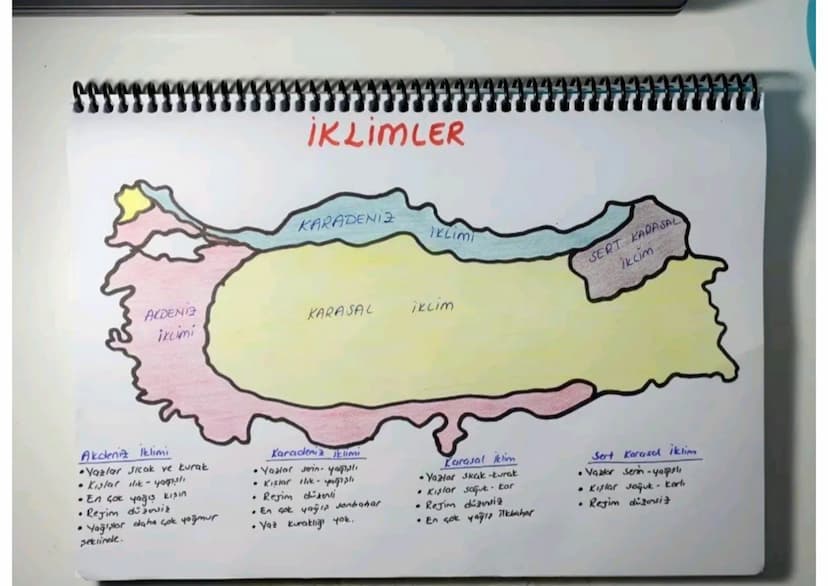 İKLİMLER
KARADENİZ
İKLİMİ
SERT KARASAL
İKLİM
AKDENİZ
İKLİMİ
KARASAL İKLİM
Akdeniz İklimi
• Yazlar sıcak ve kurak
• Kışlar ılık-yağışlı
• En çok yağış kışın
• Rejim düzensiz
• Yağışlar daha çok yağmur
şeklinde.
Karadeniz iklimi
• Yazlar serin-yağışlı
• Kışlar ılık-yağışlı
• Rejim düzenli
• En çok yağış sonbahar
• Yaz kuraklığı yok.
Karasal İklim
• Yazlar sıcak-kurak
• Kışlar soğuk-kar
• Rejim düzensiz
• En çok yağış ilkbahar
Sert Karasal İklim
• Yazlar serin-yağışlı
• Kışlar soğuk-karlı
• Rejim düzensiz